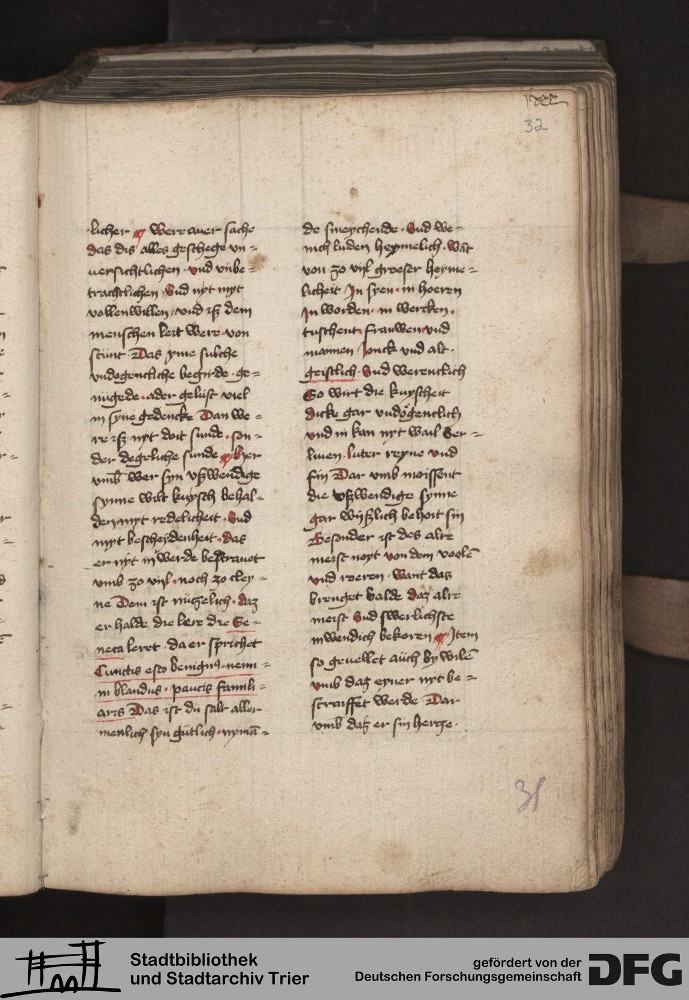 32
licher ¶ Were auer sache
das dis alles geschege vn=
uersichtlichen · vnd vnbe=
trachtlichen · Vnd nyt myt
vollenwillen / vnd ist dem
menschen leit were von
stunt · Das yme sulche
vndogentliche begirde · ge=
nugede · ader gelust viel
in syne gedencke Dan we=
re ist nyt doit sunde · son=
der degeliche sunde ¶ her
vmb wer syn vßwendige
synne wilt kuysch behal=
den myt redelicheit · Vnd
myt bescheydenheit · das
er nyt in werde bestrauet
vmb zo vijl · noch zo cley=
ne Dem ist nutzelich · daz
er halde die lere die Se=
neca leret · da er sprichet
Cunctis esto benignus · nemi=
ni blandus · paucis famili=
aris Das ist du salt aller
menlich syn gutlich · nymā=
de smeychende · Vnd we=
nich luden heymelich · Wāt
von zo vijl groeser heyme=
licheit In syen · in hoeren
In worden · in wercken ·
tuschent frauwen vnd
mannen Jonck vnd alt ·
geistlich · Vnd werentlich
So wirt die kuyscheit
dicke gar vndogentlich
vnd in kan nyt wail ver=
liuen · luter reyne vnd
fin Dar vmb moissent
die vßwendige synne
gar wyßlich behoit sin
Besonder ist des alre
meist noyt von dem voelē
vnd roeren · Want das
brenget balde daz alre
meist Vnd swerlichste
inwendich bekoren ¶ Item
so geuellet auch by wilē
vmb daz eyner nyt be=
straiffet werde · Dar
vmb daz er sin hertze ·
31
Stadtbibliothek
und Stadtarchiv Trier
gefördert von der
Deutschen Forschungsgemeinschaft
DFG